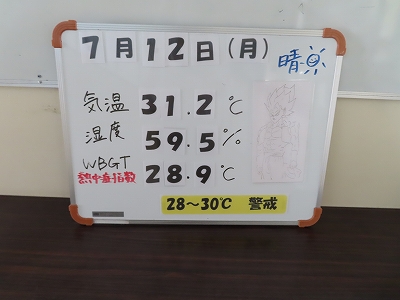 7月12日(月) 晴
気温 31.2℃
湿度 59.5%
WBGT 28.9℃
熱中症指数
28～30℃ 警戒